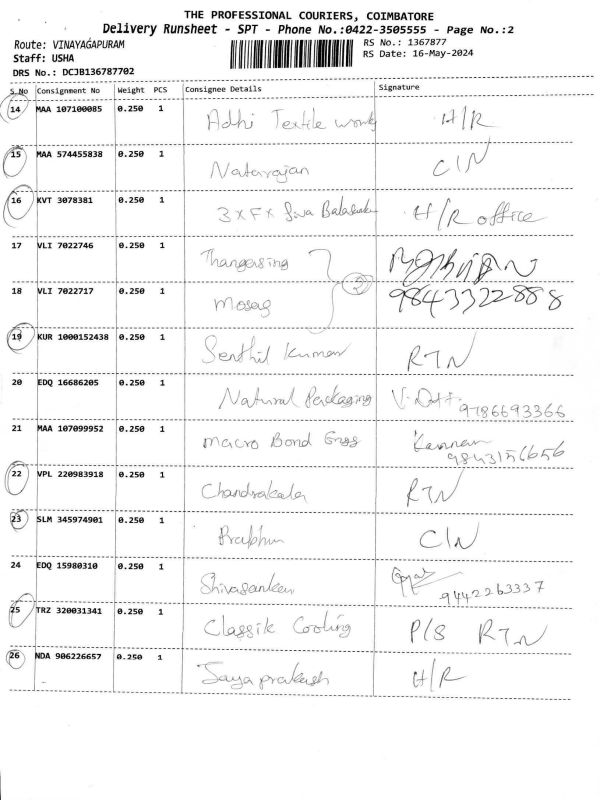 THE PROFESSIONAL COURIERS, COIMBATORE
Delivery Runsheet - SPT - Phone No.:0422-3505555 - Page No.:2
Route: VINAYAGAPURAM
RS No.: 1367877
Staff: USHA
RS Date: 16-May-2024
DRS No.: DCJB136787702
S.No Consignment No Weight PCS Consignee Details Signature
14 MAA 107100085 0.250 1 Adhi Textile works H/R
15 MAA 574455838 0.250 1 Natarajan C/N
16 KVT 3078381 0.250 1 3XFX Siva H/R office
17 VLI 7022746 0.250 1 Thangasing
2
18 VLI 7022717 0.250 1 Mosag 9843322888
19 KUR 1000152438 0.250 1 Senthil Kumar RTN
20 EDQ 16686205 0.250 1 Natural Packaging 9786693366
21 MAA 107099952 0.250 1 Macro Bond Kannan
9843156656
22 VPL 220983918 0.250 1 Chandrakala RTN
23 SLM 345974901 0.250 1 Prabhu C/N
24 EDQ 15980310 0.250 1 Shivasankar 9442263337
25 TRZ 320031341 0.250 1 Classik Cooling P/S RTN
26 NDA 906226657 0.250 1 Jayaprakash H/R